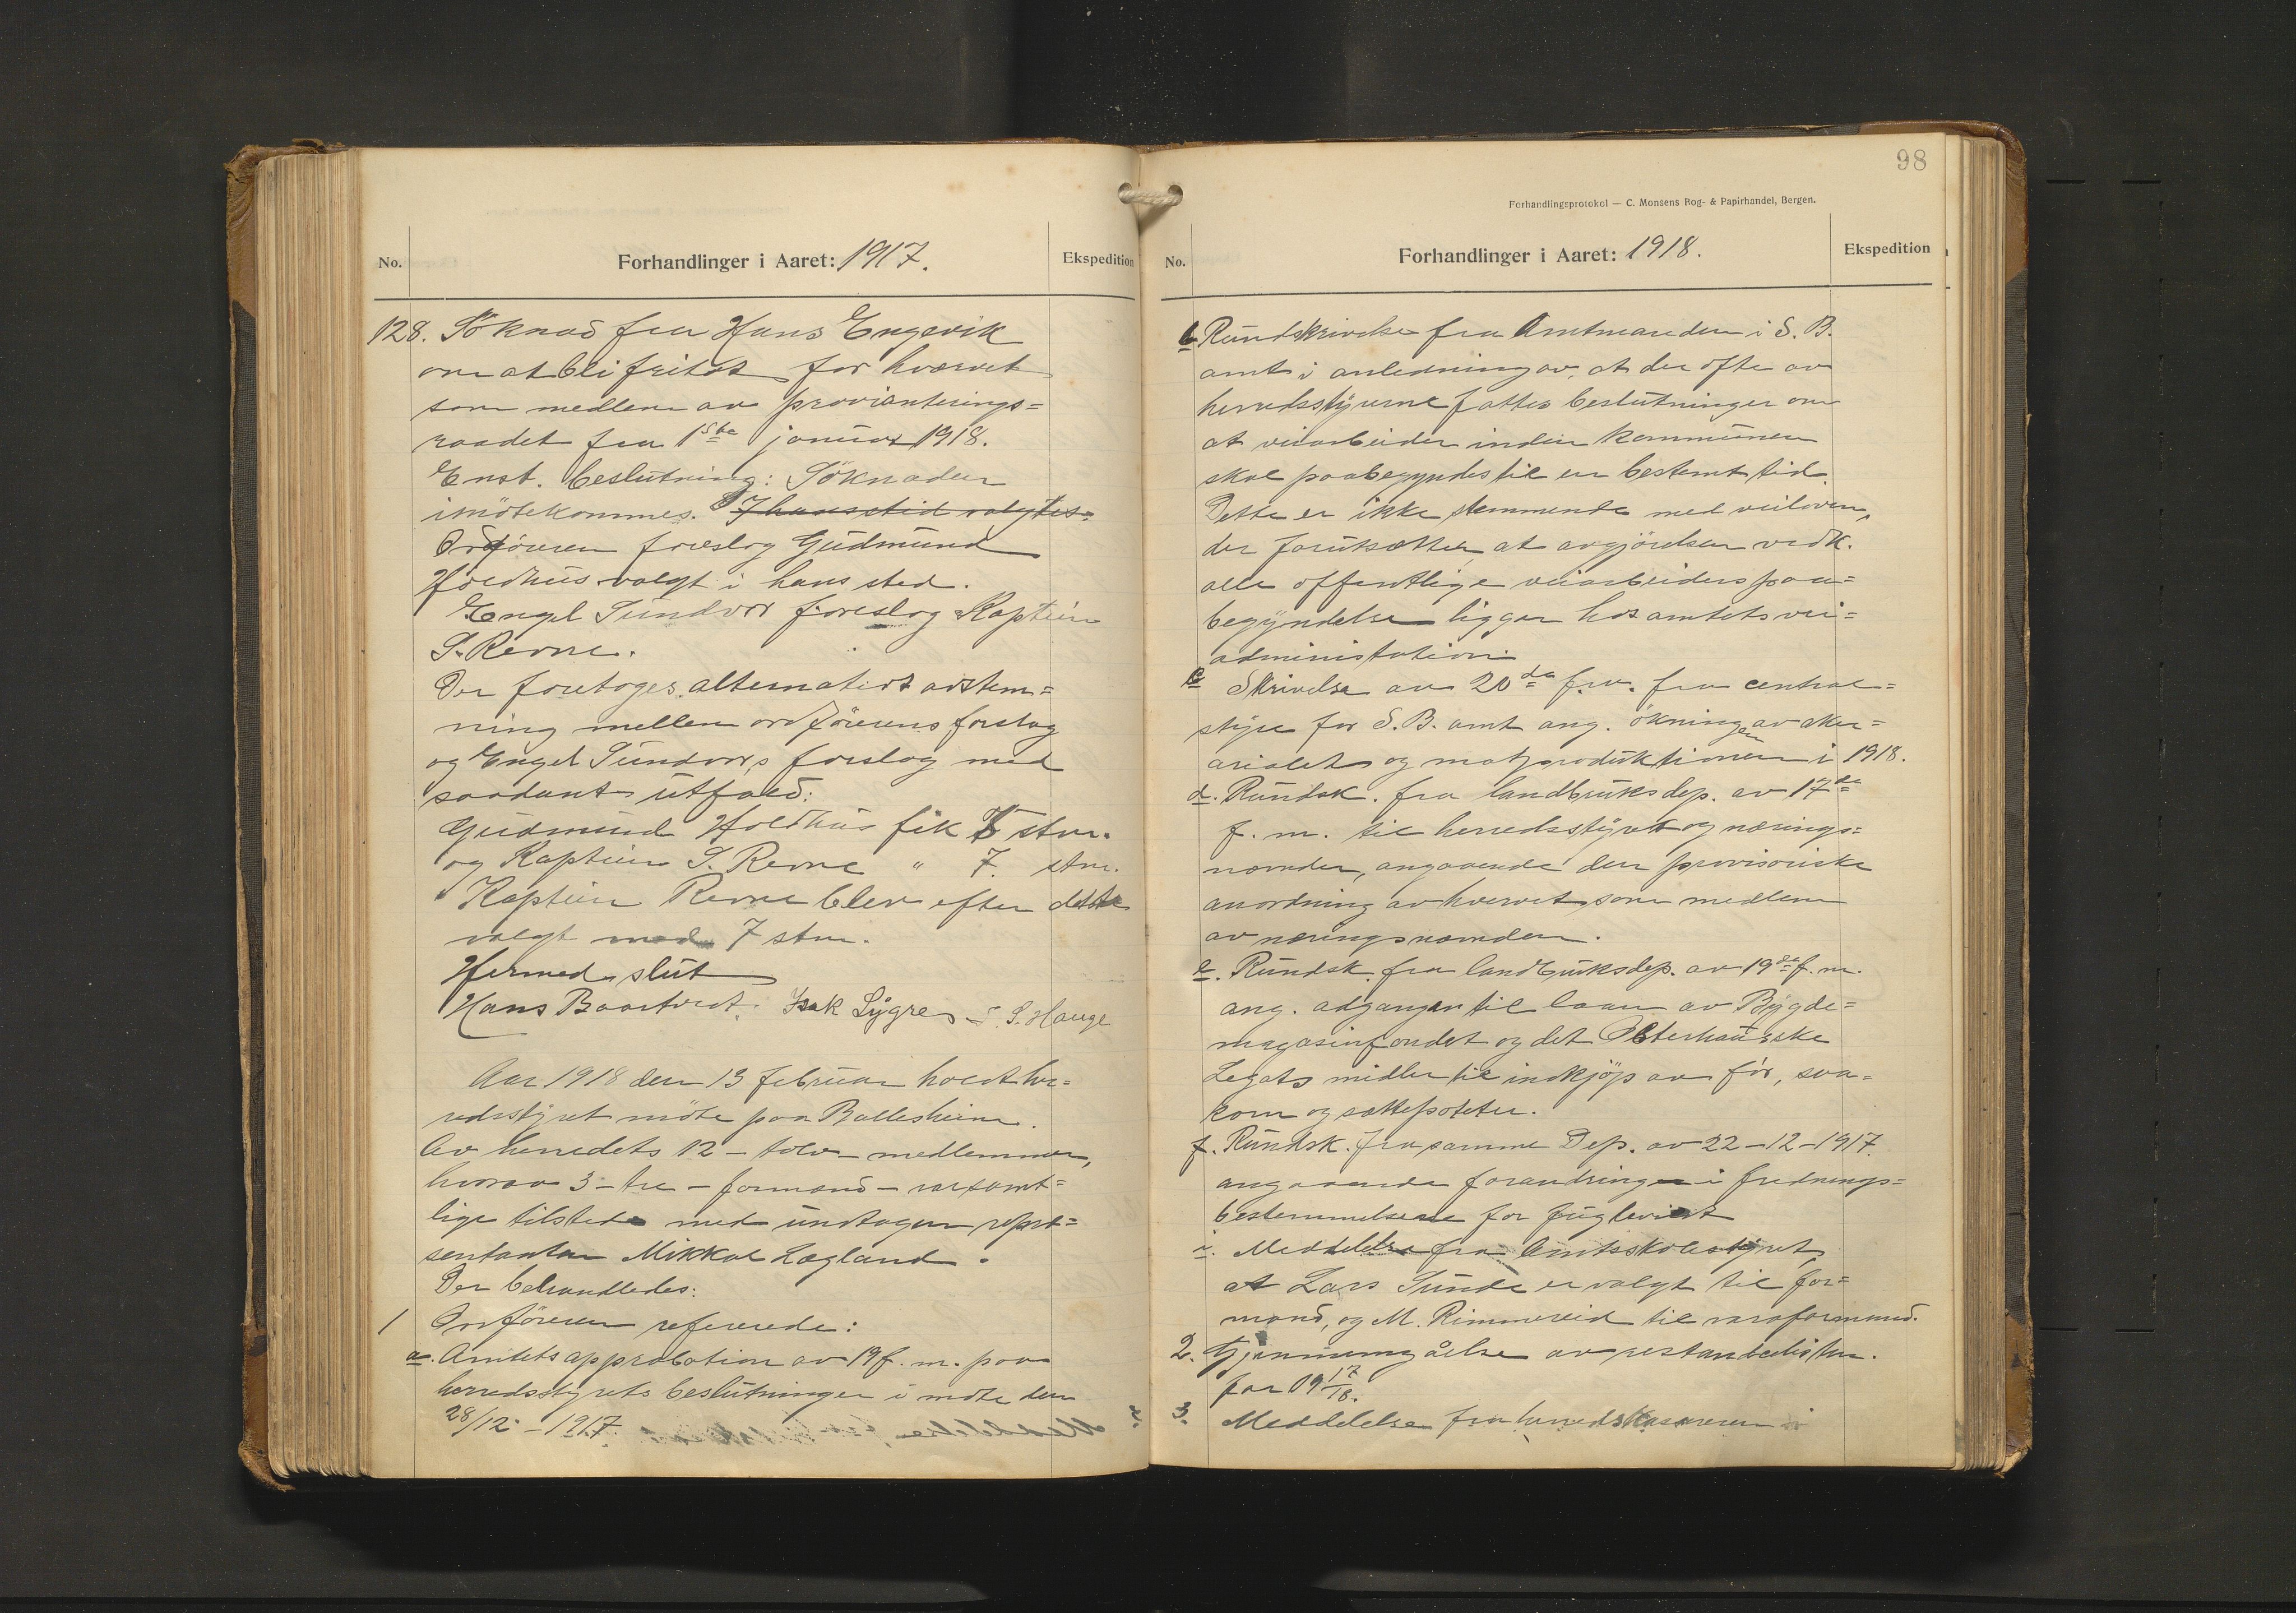 No.
Forhandlinger i Aaret: 1917.
Ekspedition
128. Söknad fra Hans Engevik
om at bli fritat for hvervet
som medlem av provianterings=
raadet fra 1ste januar 1918.
Enst. beslutning: Söknaden
imötekommes. I hans sted valgtes
Ordföreren foreslog Gudmund
Holdhus valgt i hans sted.
Engel Sundvor foreslog Kaptein
S. Revne.
Der foretoges alternativt avstem=
ning mellem ordförerens forslag
og Engel Sundvors forslag med
saadant utfald:
Gudmund Holdhus fik 5 stm.
og Kaptein S. Revne " 7. stm.
Kaptein Revne blev efter dette
valgt med 7 stm.
Hermed slut
Hans Baartvedt. Isak Lygre S. Hauge
Aar 1918 den 13 februar holdt her=
redsstyret möte paa Ballesheim.
Av herredets 12 - tolv - medlemmer,
hvorav 3 - tre - formænd - var samt=
lige tilstede med undtagen repræ=
sentanten Mikkal Løgland.
Der behandledes:
1 Ordföreren refererede:
a. Amtets approbation av 19 f. m. paa
herredsstyrets beslutninger i möte den
28/12 - 1917.
98
Forhandlingsprotokol — C. Monsens Bog- & Papirhandel, Bergen.
No.
Forhandlinger i Aaret: 1918.
Ekspedition
b Rundskrivelse fra Amtmanden i S. B.
amt i anledning av, at der ofte av
herredsstyrerne fattes beslutninger om
at veiarbeider inden kommunen
skal paabegyndes til en bestemt tid.
Dette er ikke stemmende med veiloven,
der forutsætter at avgjörelsen vedk.
alle offentlige veiarbeiders paa=
begyndelse ligger hos amtets vei=
administration.
c Skrivelse av 20de f.m. fra central=
styre for S. B. amt ang. ökningen av aker=
arealet og matproduktionen i 1918.
d. Rundsk. fra landbruksdep. av 17de
f. m. til herredsstyret og nærings=
nemden, angaaende den provisoriske
anordning av hvervet som medlem
av næringsnemden.
e. Rundsk. fra landbruksdep. av 19de f. m.
ang. adgangen til laan av Bygde=
magasinfondet og det Østerhausske
Legats midler til indkjöp av för, saa=
korn og sættepoteter.
f. Rundsk. fra samme Dep. av 22-12-1917
angaaende forandringer i frednings=
bestemmelserne for fuglevildt
i. Meddelelse fra Amtsskolestyret,
at Lars Sunde er valgt til for=
mand, og M. Rimmereid til varaformand.
2. Gjennemgåelse av restancelisten
for 1917/18.
3. Meddelelse fra herredskasereren i